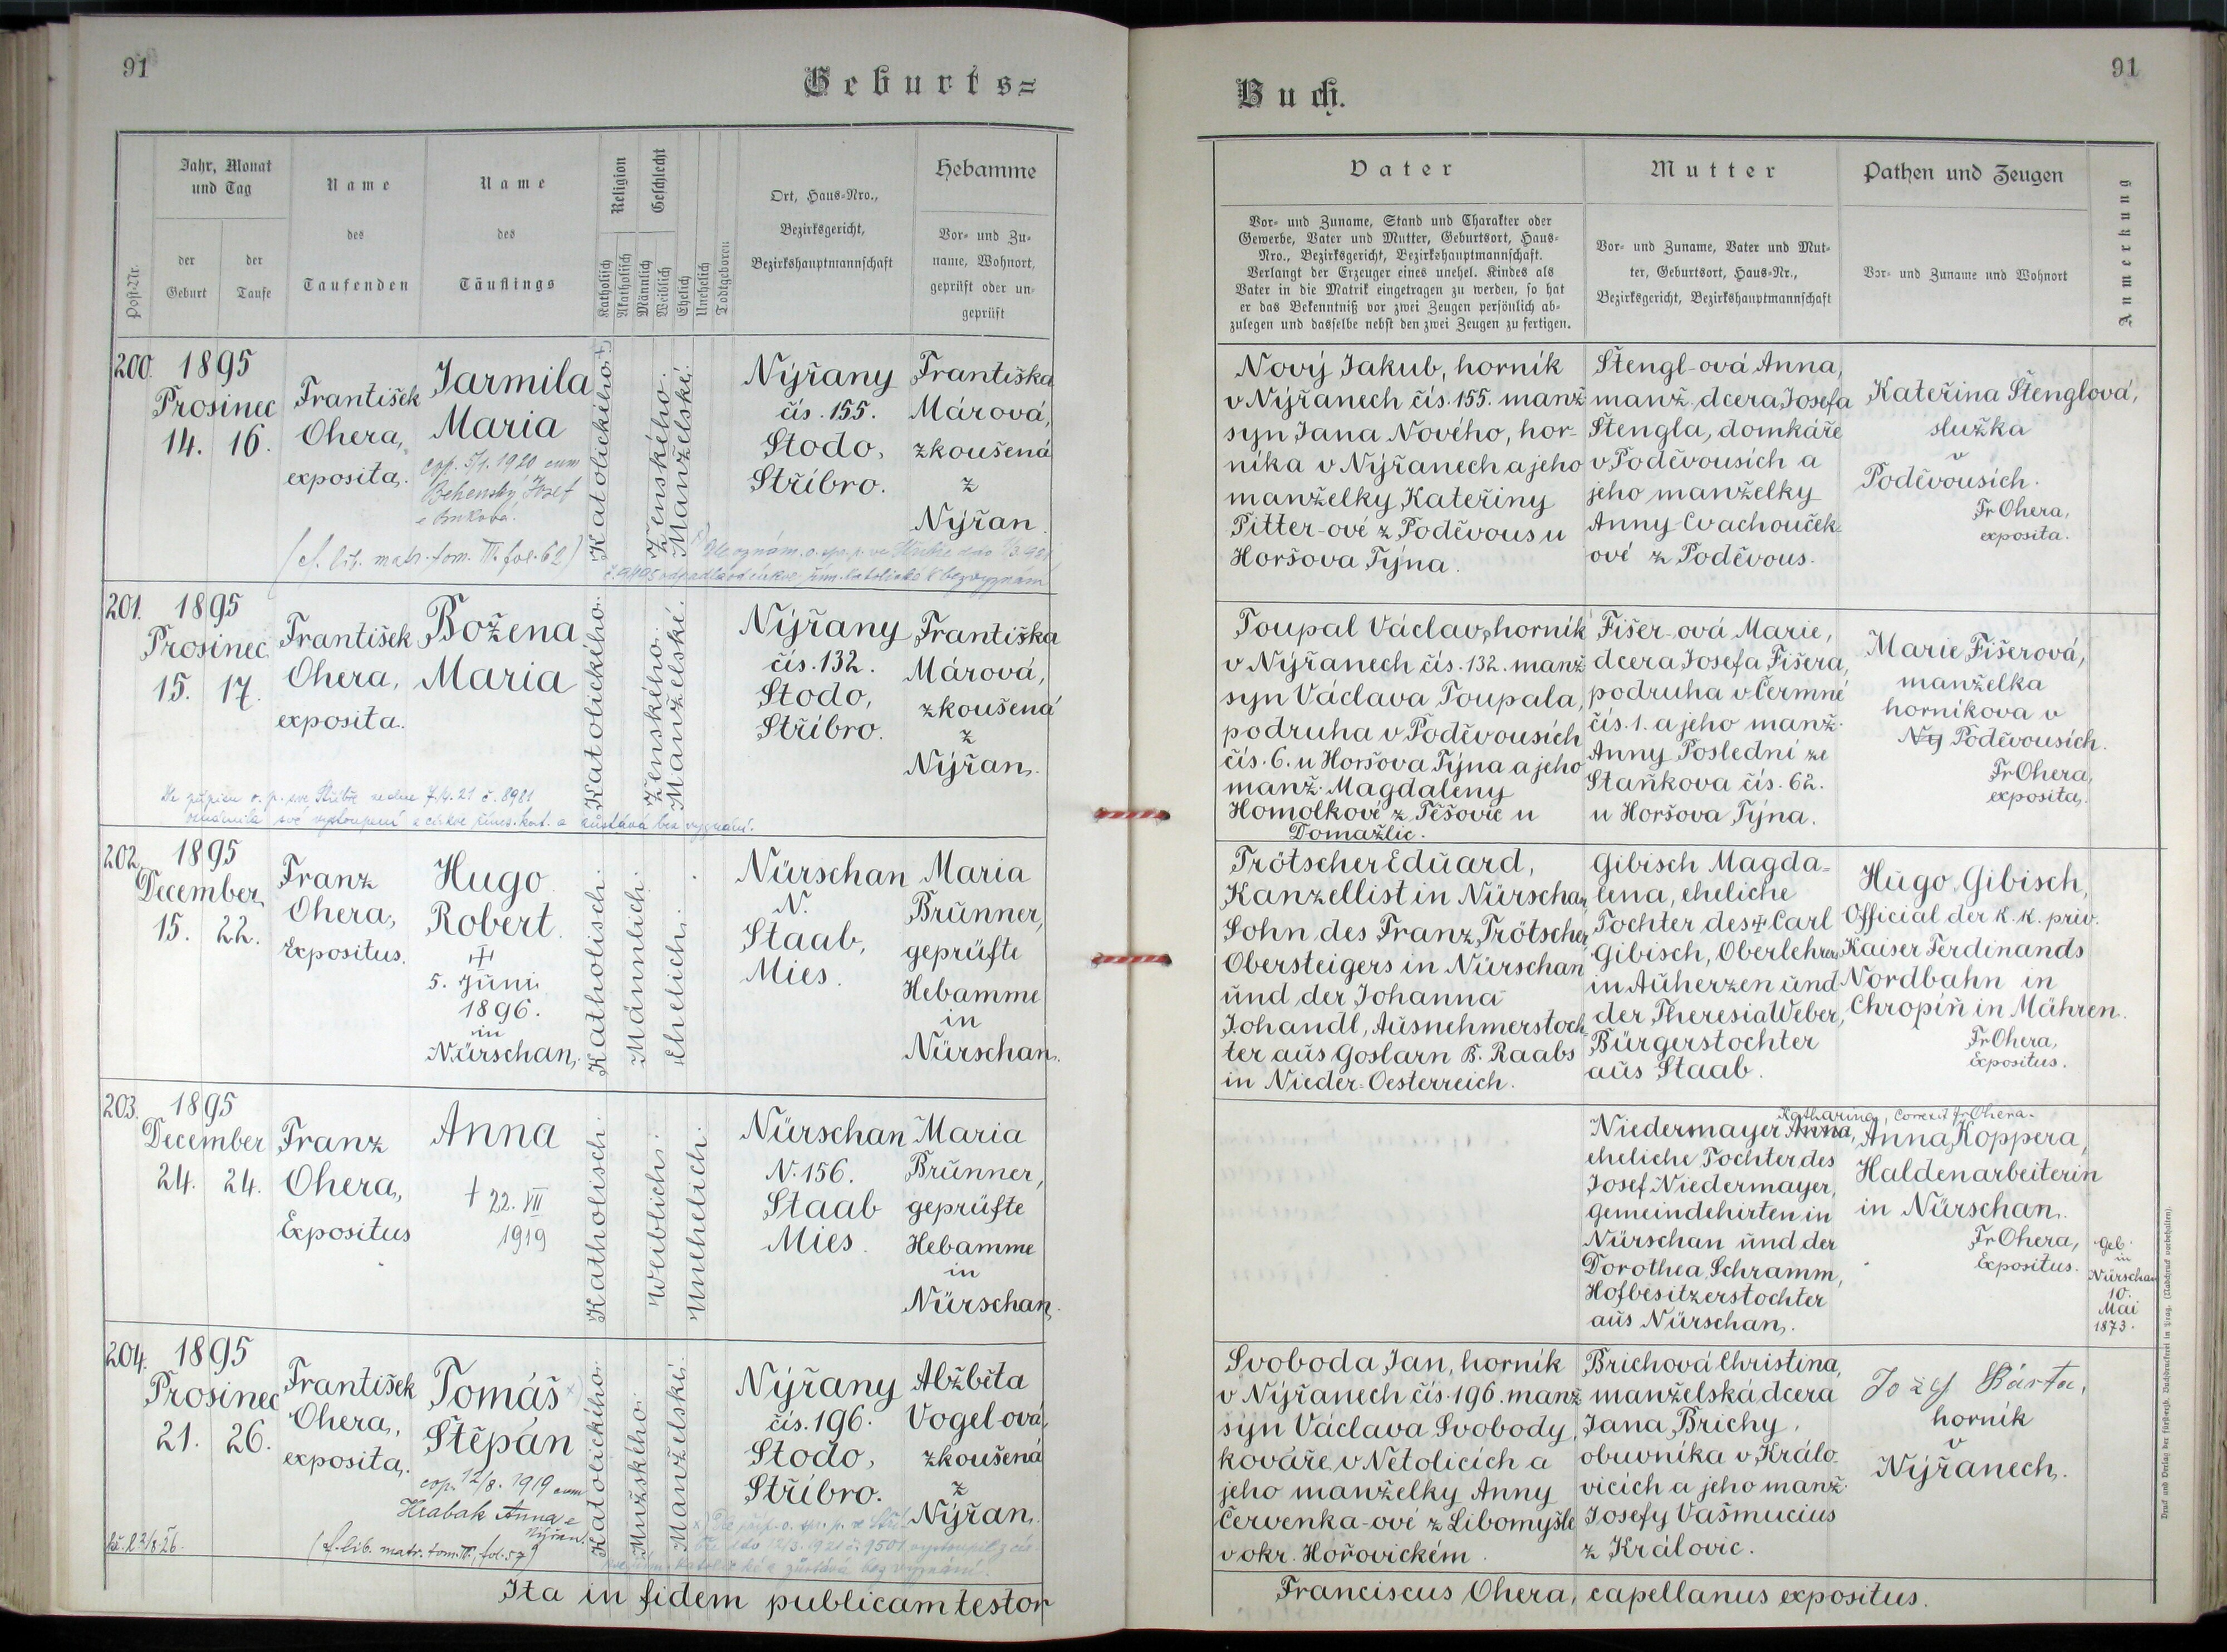 91
Geburts=
Jahr, Monat
und Tag
der
Geburt
der
Taufe
Post-Nr.
Name
des
Taufenden
Name
des
Täuflings
Religion
Katholisch
Akatholisch
Geschlecht
Männlich
Weiblich
Ehelich
Unehelich
Todtgeboren
Ort, Haus-Nro.,
Bezirksgericht,
Bezirkshauptmannschaft
Hebamme
Vor- und Zu-
name, Wohnort,
geprüft oder un-
geprüft
200.
1895
Prosinec
14. 16.
František
Ohera,
exposita.
Jarmila
Maria
cop. 5/1. 1920 cum
Behenský Josef
(cf. lib. matr. tom. III. fol. 62)
Katolického
Ženského.
Manželské.
Nýřany
čís. 155.
Stodo,
Stříbro.
Františka
Márová,
zkoušená
z
Nýřan.
201.
1895
Prosinec
15. 17.
František
Ohera,
exposita.
Božena
Maria
Katolického.
Ženského.
Manželské.
Nýřany
čís. 132.
Stodo,
Stříbro.
Františka
Márová,
zkoušená
z
Nýřan.
č. 8981
své vystoupení z církve a zůstává bez vyznání.
202.
1895
December
15. 22.
Franz
Ohera,
Expositus.
Hugo
Robert.
5. Juni
1896.
in
Nürschan.
Katholisch.
Männlich.
Ehelich.
Nürschan
N.
Staab,
Mies.
Maria
Brunner,
geprüfte
Hebamme
in
Nürschan.
203.
1895
December
24. 24.
Franz
Ohera,
Expositus
Anna
† 22. VII
1919
Katholisch.
Weiblich.
Unehelich.
Nürschan
N. 156.
Staab
Mies.
Maria
Brunner,
geprüfte
Hebamme
in
Nürschan.
204.
1895
Prosinec
21. 26.
František
Ohera,
exposita.
Tomáš
Štěpán
cop. 12/8. 1919 cum
Hrabak Anna e
Nýřan.
(cf. lib. matr. tom. III, fol. 57)
Katolického.
Mužského.
Manželské.
Nýřany
čís. 196.
Stodo,
Stříbro.
Alžběta
Vogel-ová,
zkoušená
z
Nýřan.
Ita in fidem publicam testor
91
Buch.
Vater
Vor- und Zuname, Stand und Charakter oder
Gewerbe, Vater und Mutter, Geburtsort, Haus-
Nro., Bezirksgericht, Bezirkshauptmannschaft.
Verlangt der Erzeuger eines unehel. Kindes als
Vater in die Matrik eingetragen zu werden, so hat
er das Bekenntniß vor zwei Zeugen persönlich ab-
zulegen und dasselbe nebst den zwei Zeugen zu fertigen.
Mutter
Vor- und Zuname, Vater und Mut-
ter, Geburtsort, Haus-Nr.,
Bezirksgericht, Bezirkshauptmannschaft
Pathen und Zeugen
Vor- und Zuname und Wohnort
Anmerkung
Nový Jakub, horník
v Nýřanech čís. 155. manž.
syn Jana Nového, hor-
níka v Nýřanech a jeho
manželky Kateřiny
Pitter-ové z Poděvous u
Horšova Týna.
Štengl-ová Anna,
manž. dcera Josefa
Štengla, domkáře
v Poděvousích a
jeho manželky
Anny Cvachouček-
ové z Poděvous.
Kateřina Štenglová,
služka
v
Poděvousích.
Fr Ohera,
exposita.
Toupal Václav, horník
v Nýřanech čís. 132. manž.
syn Václava Toupala,
podruha v Poděvousích
čís. 6. u Horšova Týna a jeho
manž. Magdaleny
Homolkové z Těšovic u
Domažlic.
Fišer-ová Marie,
dcera Josefa Fišera,
podruha v Čermné
čís. 1. a jeho manž.
Anny Poslední ze
Staňkova čís. 62.
u Horšova Týna.
Marie Fišerová,
manželka
horníkova v
Ný Poděvousích.
Fr Ohera,
exposita.
Trötscher Eduard,
Kanzellist in Nürschan,
Sohn des Franz Trötscher,
Obersteigers in Nürschan
und der Johanna
Johandl, Ausnehmerstoch-
ter aus Goslarn B. Raabs
in Nieder-Oesterreich.
Gibisch Magda-
lena, eheliche
Tochter des † Carl
Gibisch, Oberlehrers
in Auherzen und
der Theresia Weber,
Bürgerstochter
aus Staab.
Hugo Gibisch,
Official der k. k. priv.
Kaiser Ferdinands
Nordbahn in
Chropiň in Mähren.
Fr Ohera,
Expositus.
Katharina, correxit Fr Ohera.
Niedermayer Anna,
eheliche Tochter des
Josef Niedermayer,
Gemeindehirten in
Nürschan und der
Dorothea Schramm,
Hofbesitzerstochter
aus Nürschan.
Anna Koppera,
Haldenarbeiterin
in Nürschan.
Fr Ohera,
Expositus.
geb.
in
Nürschan
10.
Mai
1873.
Svoboda Jan, horník
v Nýřanech čís. 196. manž.
syn Václava Svobody,
kováře v Netolicích a
jeho manželky Anny
Červenka-ové z Libomyšle
v okr. Hořovickém.
Brichová Christina,
manželská dcera
Jana Brichy,
obuvníka v Králo-
vicích a jeho manž.
Josefy Vašmucius
z Královic.
Jozef Bárta,
horník
v
Nýřanech.
Franciscus Ohera, capellanus expositus.
Druck und Verlag der fürsterzb. Buchdruckerei in Prag. (Nachdruck vorbehalten).